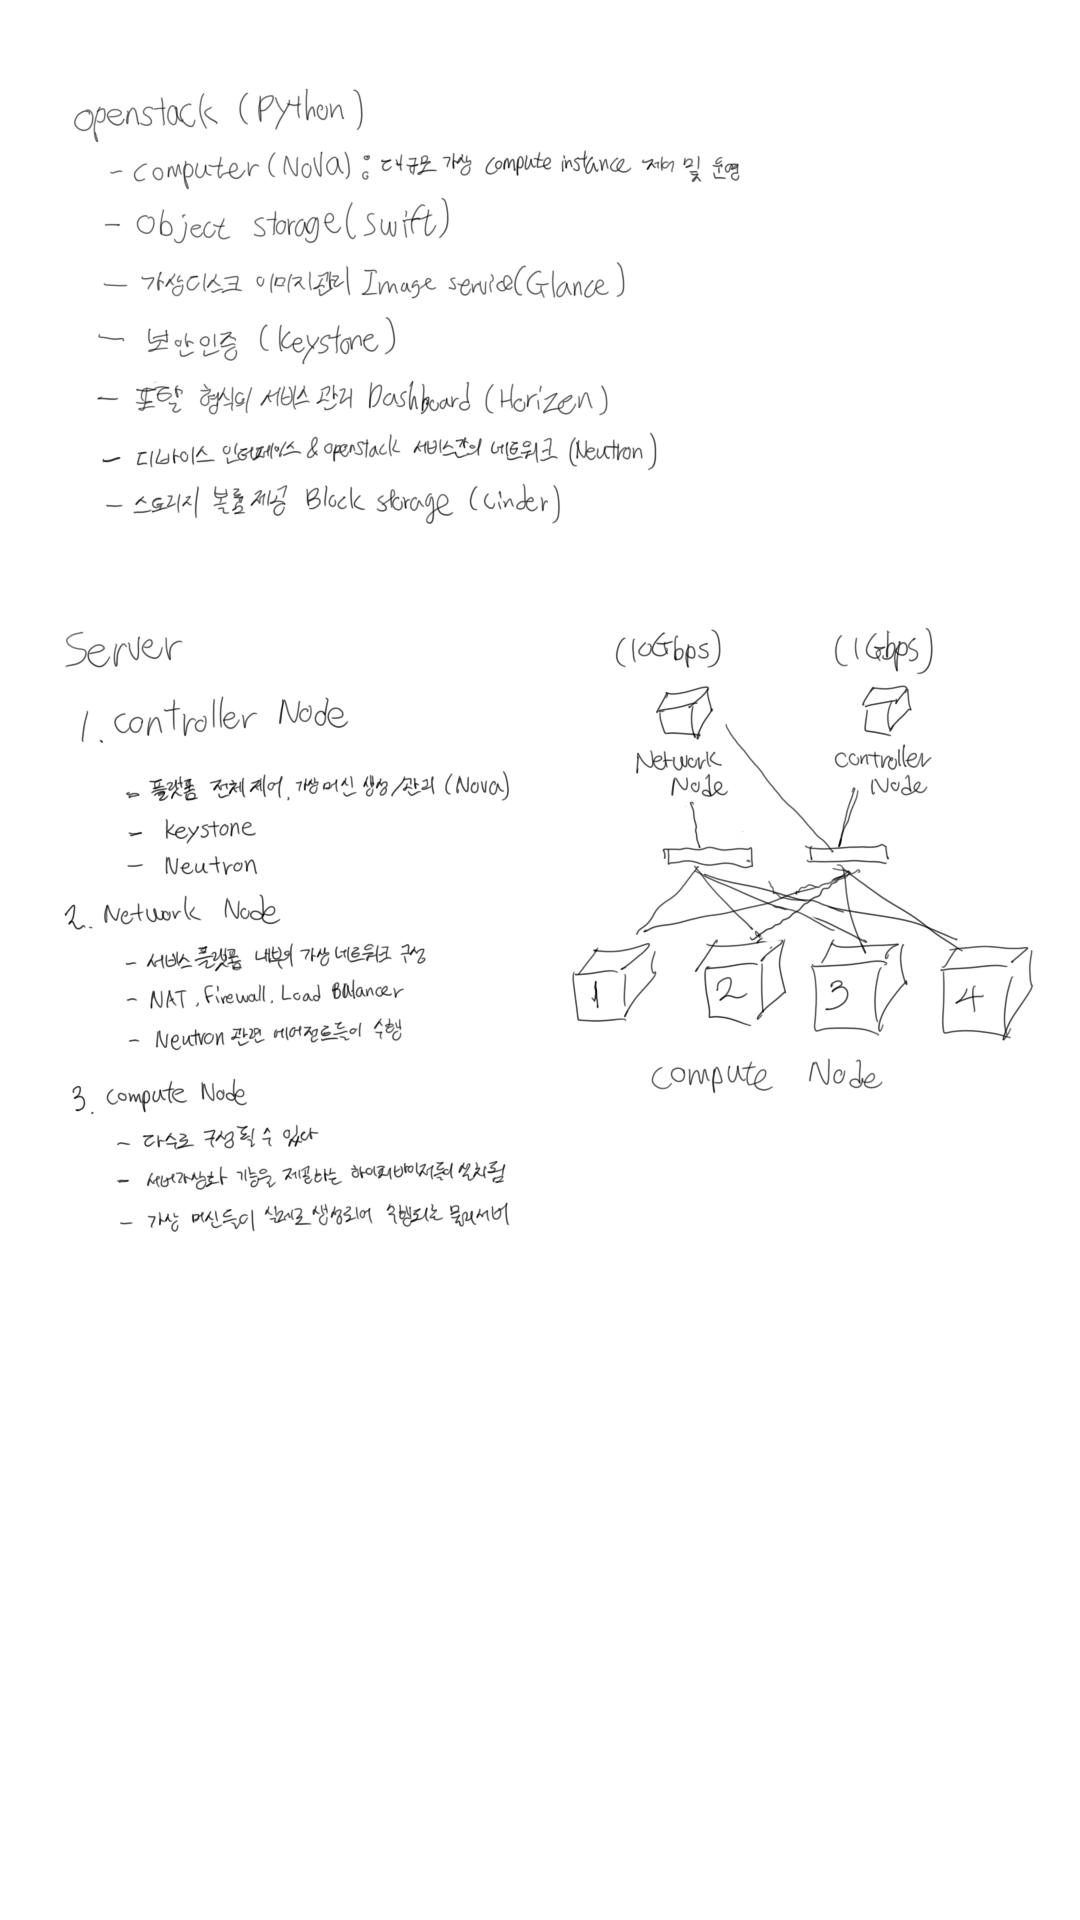 openstack (Python)
- computer (Nova) : 대규모 가상 compute instance 제어 및 운영
- Object storage (swift)
- 가상디스크 이미지관리 Image service (Glance)
- 보안인증 (keystone)
- 포탈 형식의 서비스 관리 Dashboard (Horizen)
- 디바이스 인터페이스 & openstack 서비스간의 네트워크 (Neutron)
- 스토리지 볼륨제공 Block storage (Cinder)
Server
1. controller Node
- 플랫폼 전체 제어, 가상머신 생성/관리 (Nova)
- keystone
- Neutron
2. Network Node
- 서비스 플랫폼 내부의 가상 네트워크 구성
- NAT, Firewall, Load Balancer
- Neutron 관련 에이전트들이 수행
3. compute Node
- 다수로 구성될 수 있다
- 서버가상화 기능을 제공하는 하이퍼바이저들이 설치됨
- 가상 머신들이 실제로 생성되어 수행되는 물리서버
(10Gbps) (1Gbps)
Network Node
controller Node
1 2 3 4
compute Node